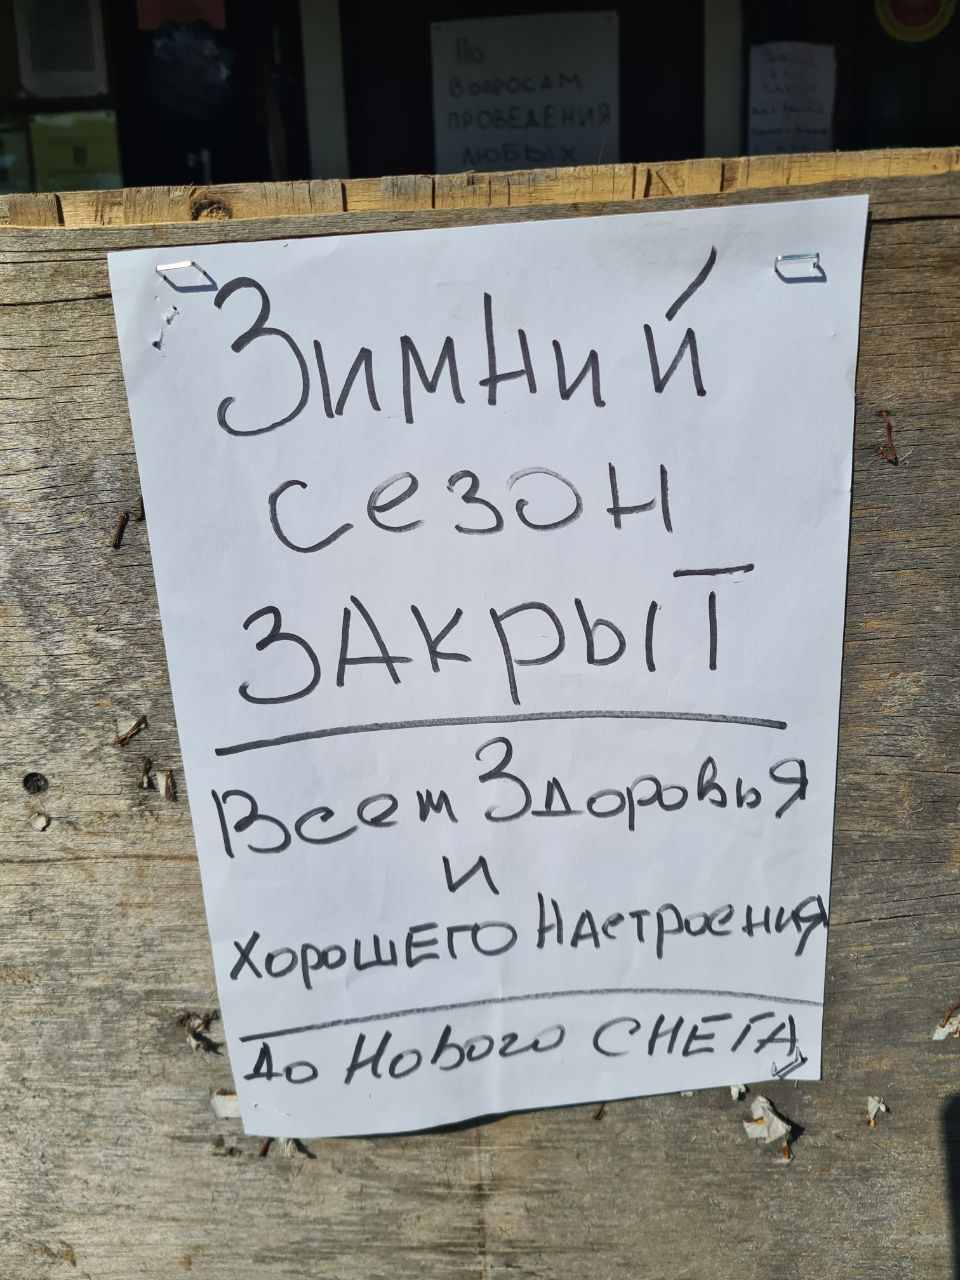 По
вопросам
проведения
любых
Зимний
сезон
закрыт
Всем Здоровья
и
хорошего Настроения
до Нового СНЕГА